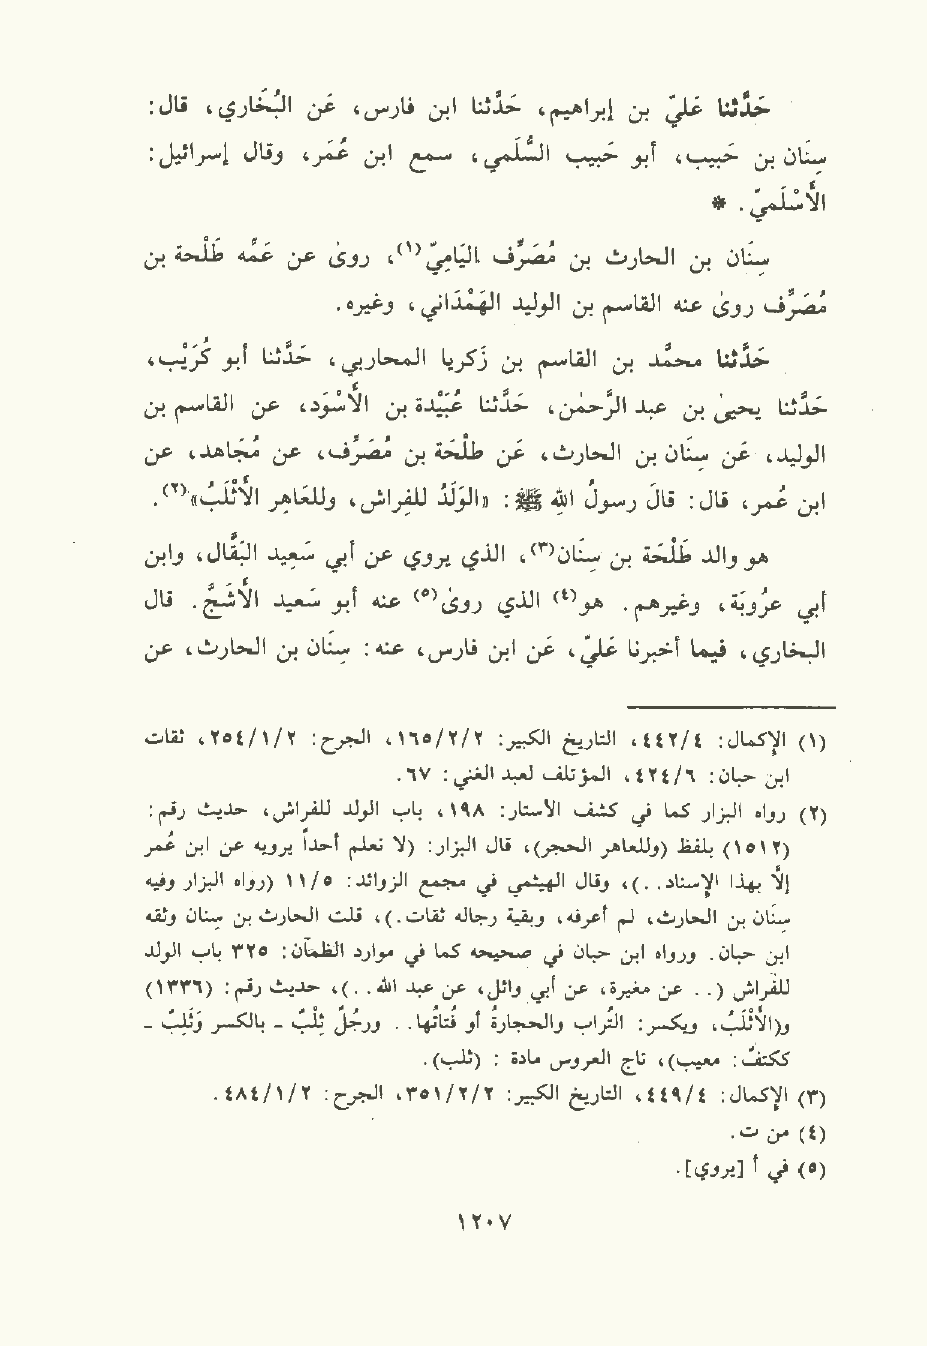 حَدَّثنا عَليّ بن إبراهيم، حَدَّثنا ابن فارس، عَن البُخَاري، قال:
سِنَان بن حَبيب، أبو حَبيب السُّلَمي، سمع ابن عُمَر، وقال إسرائيل:
الأَسْلَميّ. *
سِنَان بن الحارث بن مُصَرِّف اليَامِيّ(١)، روىٰ عن عَمِّه طَلْحة بن
مُصَرِّف روىٰ عنه القاسم بن الوليد الهَمْدَاني، وغيره.
حَدَّثنا محمَّد بن القاسم بن زكريا المحاربي، حَدَّثنا أبو كُرَيْب،
حَدَّثنا يحيىٰ بن عبد الرَّحمٰن، حَدَّثنا عُبَيْدة بن الأَسْوَد، عن القاسم بن
الوليد، عَن سِنَان بن الحارث، عَن طَلْحَة بن مُصَرِّف، عن مُجَاهد، عن
ابن عُمر، قال: قالَ رسولُ الله ﷺ: «الوَلَدُ للفراش، وللعَاهرِ الأَثْلَبُ»(٢).
هو والد طَلْحَة بن سِنَان(٣)، الذي يروي عن أبي سَعِيد البَقَّال، وابن
أبي عرُوبَة، وغيرهم. هو(٤) الذي روىٰ(٥) عنه أبو سَعيد الأَشَجّ. قال
البخاري، فيما أخبرنا عَليّ، عَن ابن فارس، عنه: سِنَان بن الحارث، عن
(١) الإكمال: ٤٤٢/٤، التاريخ الكبير: ١٦٥/٢/٢، الجرح: ٢٥٤/١/٢، ثقات
ابن حبان: ٤٢٤/٦، المؤتلف لعبد الغني: ٦٧.
(٢) رواه البزار كما في كشف الأستار: ١٩٨، باب الولد للفراش، حديث رقم:
(١٥١٢) بلفظ (وللعاهر الحجر)، قال البزار: (لا نعلم أحداً يرويه عن ابن عُمر
إلَّا بهذا الإسناد..)، وقال الهيثمي في مجمع الزوائد: ١١/٥ (رواه البزار وفيه
سِنَان بن الحارث، لم أعرفه، وبقية رجاله ثقات.)، قلت الحارث بن سِنان وثقه
ابن حبان. ورواه ابن حبان في صحيحه كما في موارد الظمآن: ٣٢٥ باب الولد
للفراش (.. عن مغيرة، عن أبي وائل، عن عبد الله..)، حديث رقم: (١٣٣٦)
و(الأَثْلَبُ، ويكسر: التُراب والحجارةُ أو فُتَاتُها.. ورجُلٌ ثِلْبٌ - بالكسر وَثَلِبٌ -
ككتفٌ: معيب)، تاج العروس مادة : (ثلب).
(٣) الإكمال: ٤٤٩/٤، التاريخ الكبير: ٣٥١/٢/٢، الجرح: ٤٨٤/١/٢.
(٤) من ت.
(٥) في أ [يروي].
١٢٠٧